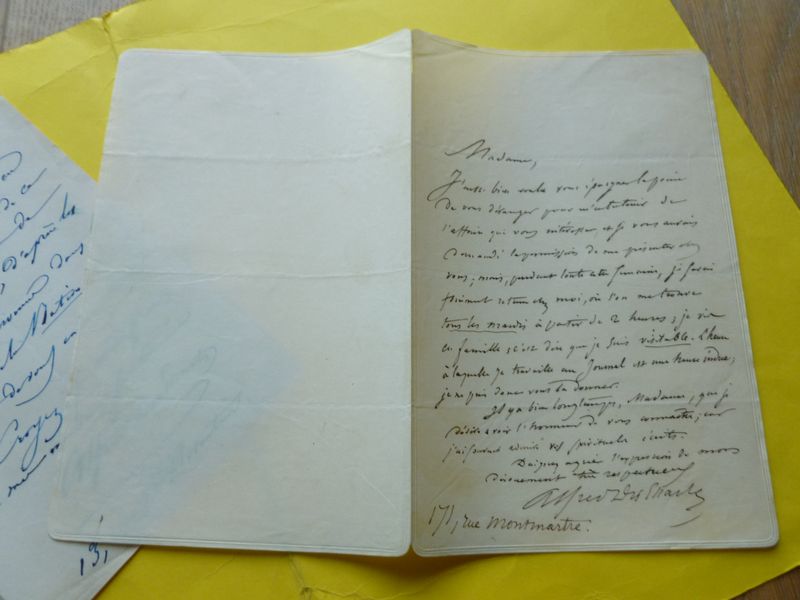 ou
de ca
de
D'après les
dans
de vous en
Croyez
13,
Madame,
J'aurais bien voulu vous épargner la peine
de vous déranger pour m'entretenir de
l'affaire qui vous intéresse, et je vous aurais
demandé la permission de me présenter chez
vous; mais, pendant toute cette semaine, je serai
forcément retenu chez moi, où l'on me trouve
tous les mardis à partir de 2 heures; je vis
en famille; c'est dire que je suis visitable. L'heure
à laquelle je travaille au Journal est une heure indue;
je ne puis donc vous la donner.
Il y a bien longtemps, Madame, que je
désire avoir l'honneur de vous connaître, car
j'ai souvent admiré vos spirituels écrits.
Daignez agréer l'expression de mon
dévouement très respectueux
Alfred Des Essarts
171, rue Montmartre.